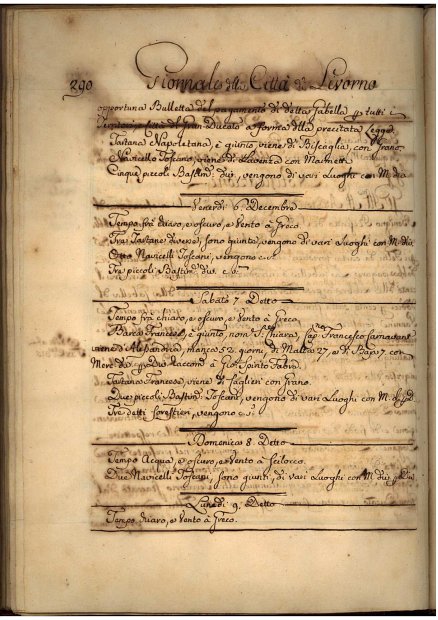 290 Giornale della Città di Livorno
opportuna Bulletta del pagamento di detta Gabella p tutti i
Territori e del Gran Ducato a forma della precitata Legge.
Tartana Napoletana, è giunta, viene di Bisceglia, con Grano.
Navicello Toscano, viene di Lavenza con Marmetti
Cinque piccoli Bastim. div. vengono di vari Luoghi con M. div.
Venerdì 6. Decembre
Tempo frà chiaro, e oscuro, e Vento à Greco.
Tre Tartane diverse, sono giunte, vengono di vari Luoghi con M. div.
Otto Navicelli Toscani, vengono c. s.
Tre piccoli Bastim. div. c. s.
Sabato 7. Detto
Tempo frà chiaro, e oscuro, e Vento à Greco.
Barca Francese, è giunta, nom. S. Chiara, Cap. Francesco
viene d'Alessandria, manca 52. giorni, di Malta 27, e P. 7. con
Mere. div. à Gio. Spirito Fabre.
Tartana Francese, viene di Caglieri con Grano.
Due piccoli Bastim. Toscani, vengono di vari Luoghi con M. di
Tre detti Forestieri, vengono c. s.
Domenica 8. Detto
Tempo Acqua, e oscuro, e Vento à Scilocco.
Due Navicelli Toscani, sono giunti, di vari Luoghi con M. div.
Lunedì 9. Detto
Tempo chiaro, e Vento à Greco.